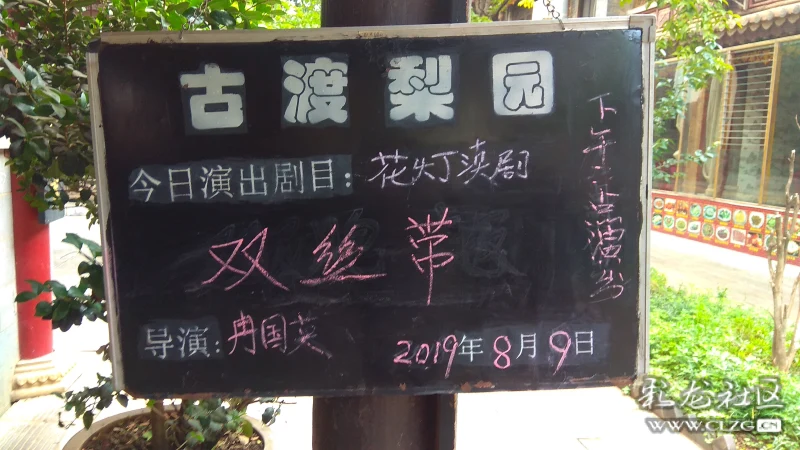 古渡梨园
今日演出剧目：花灯渎剧
双丝带
导演：冉国英
2019年8月9日
下午二点演出
彩龙社区
WWW.CLZG.CN